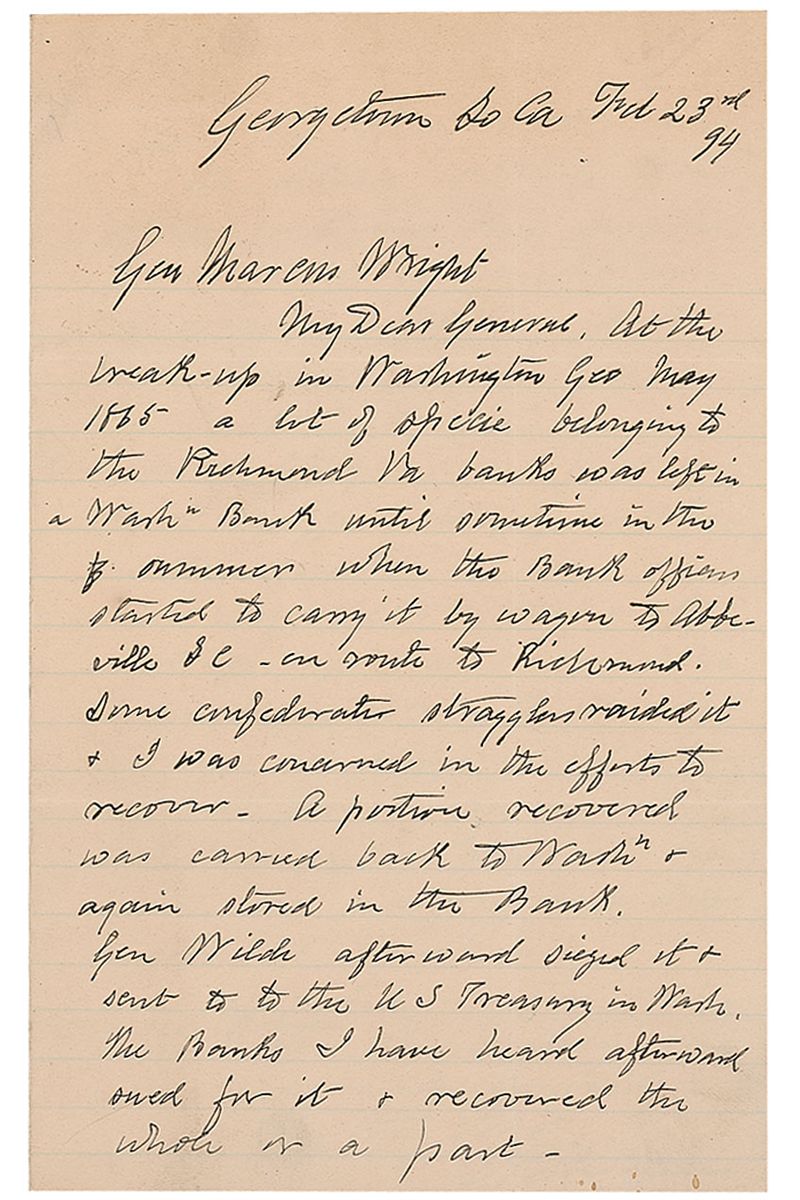 Georgetown So Ca Feb 23rd
94
Gen Marcus Wright
My Dear General, At the
break-up in Washington Geo May
1865 a lot of specie belonging to
the Richmond Va banks was left in
a Washn Bank until sometime in the
summer when the Bank officers
started to carry it by wagon to Abbe-
ville S C - en route to Richmond.
Some confederate stragglers raided it
& I was concerned in the efforts to
recover - A portion recovered
was carried back to Washn &
again stored in the Bank.
Gen Wilde afterward siezed it &
sent to to the U S Treasury in Wash.
The Banks I have heard afterward
sued for it & recovered the
whole or a part -